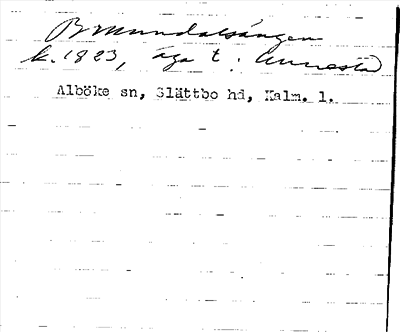 Brunndalsängen
k. 1823, äga t. Arnestad
Alböke sn, Slättbo hd, Kalm. l.